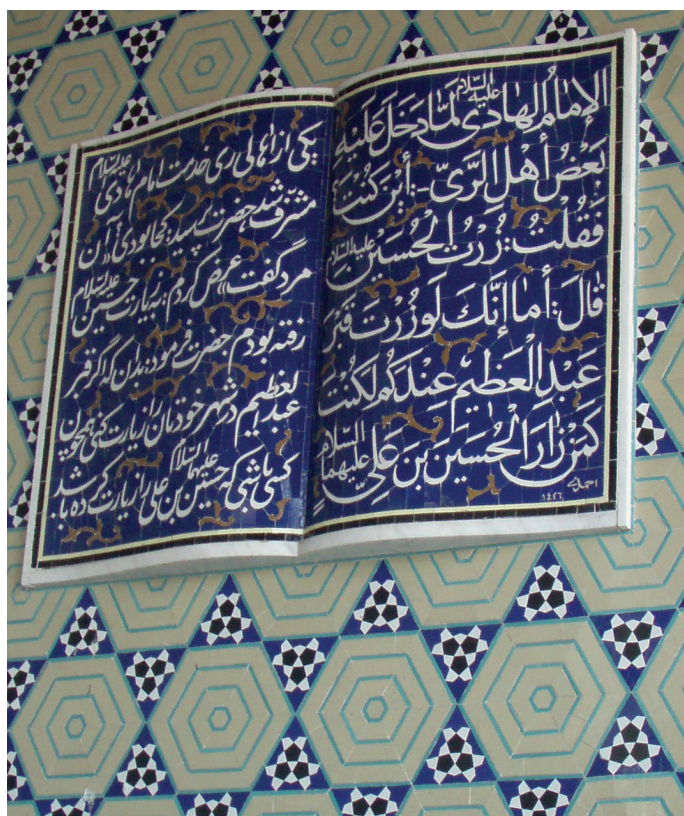 الإمامُ الهادي عليه السلام لَمّا دَخَلَ عَلَيهِ
بَعضُ أهلِ الرَّيِّ: أينَ كُنتَ؟
فَقُلتُ: زُرتُ الحُسَينَ عليه السلام
قالَ: أما إنَّكَ لَو زُرتَ قَبرَ
عَبدِ العَظيمِ عِندَكُم لَكُنتَ
كَمَن زارَ الحُسَينَ بنَ عَلِيٍّ عليهما السلام
۱۴۲۶
یکی از اهالی ری خدمت امام هادی علیه السلام
مشرف شد، حضرت پرسید: کجا بودی؟ آن
مرد گفت: عرض کردم: به زیارت حسین علیه السلام
رفته بودم حضرت فرمود: بدان که اگر قبر
عبدالعظیم در شهر خودتان را زیارت کنی همچون
کسی باشی که حسین بن علی علیهما السلام را زیارت کرده باشد